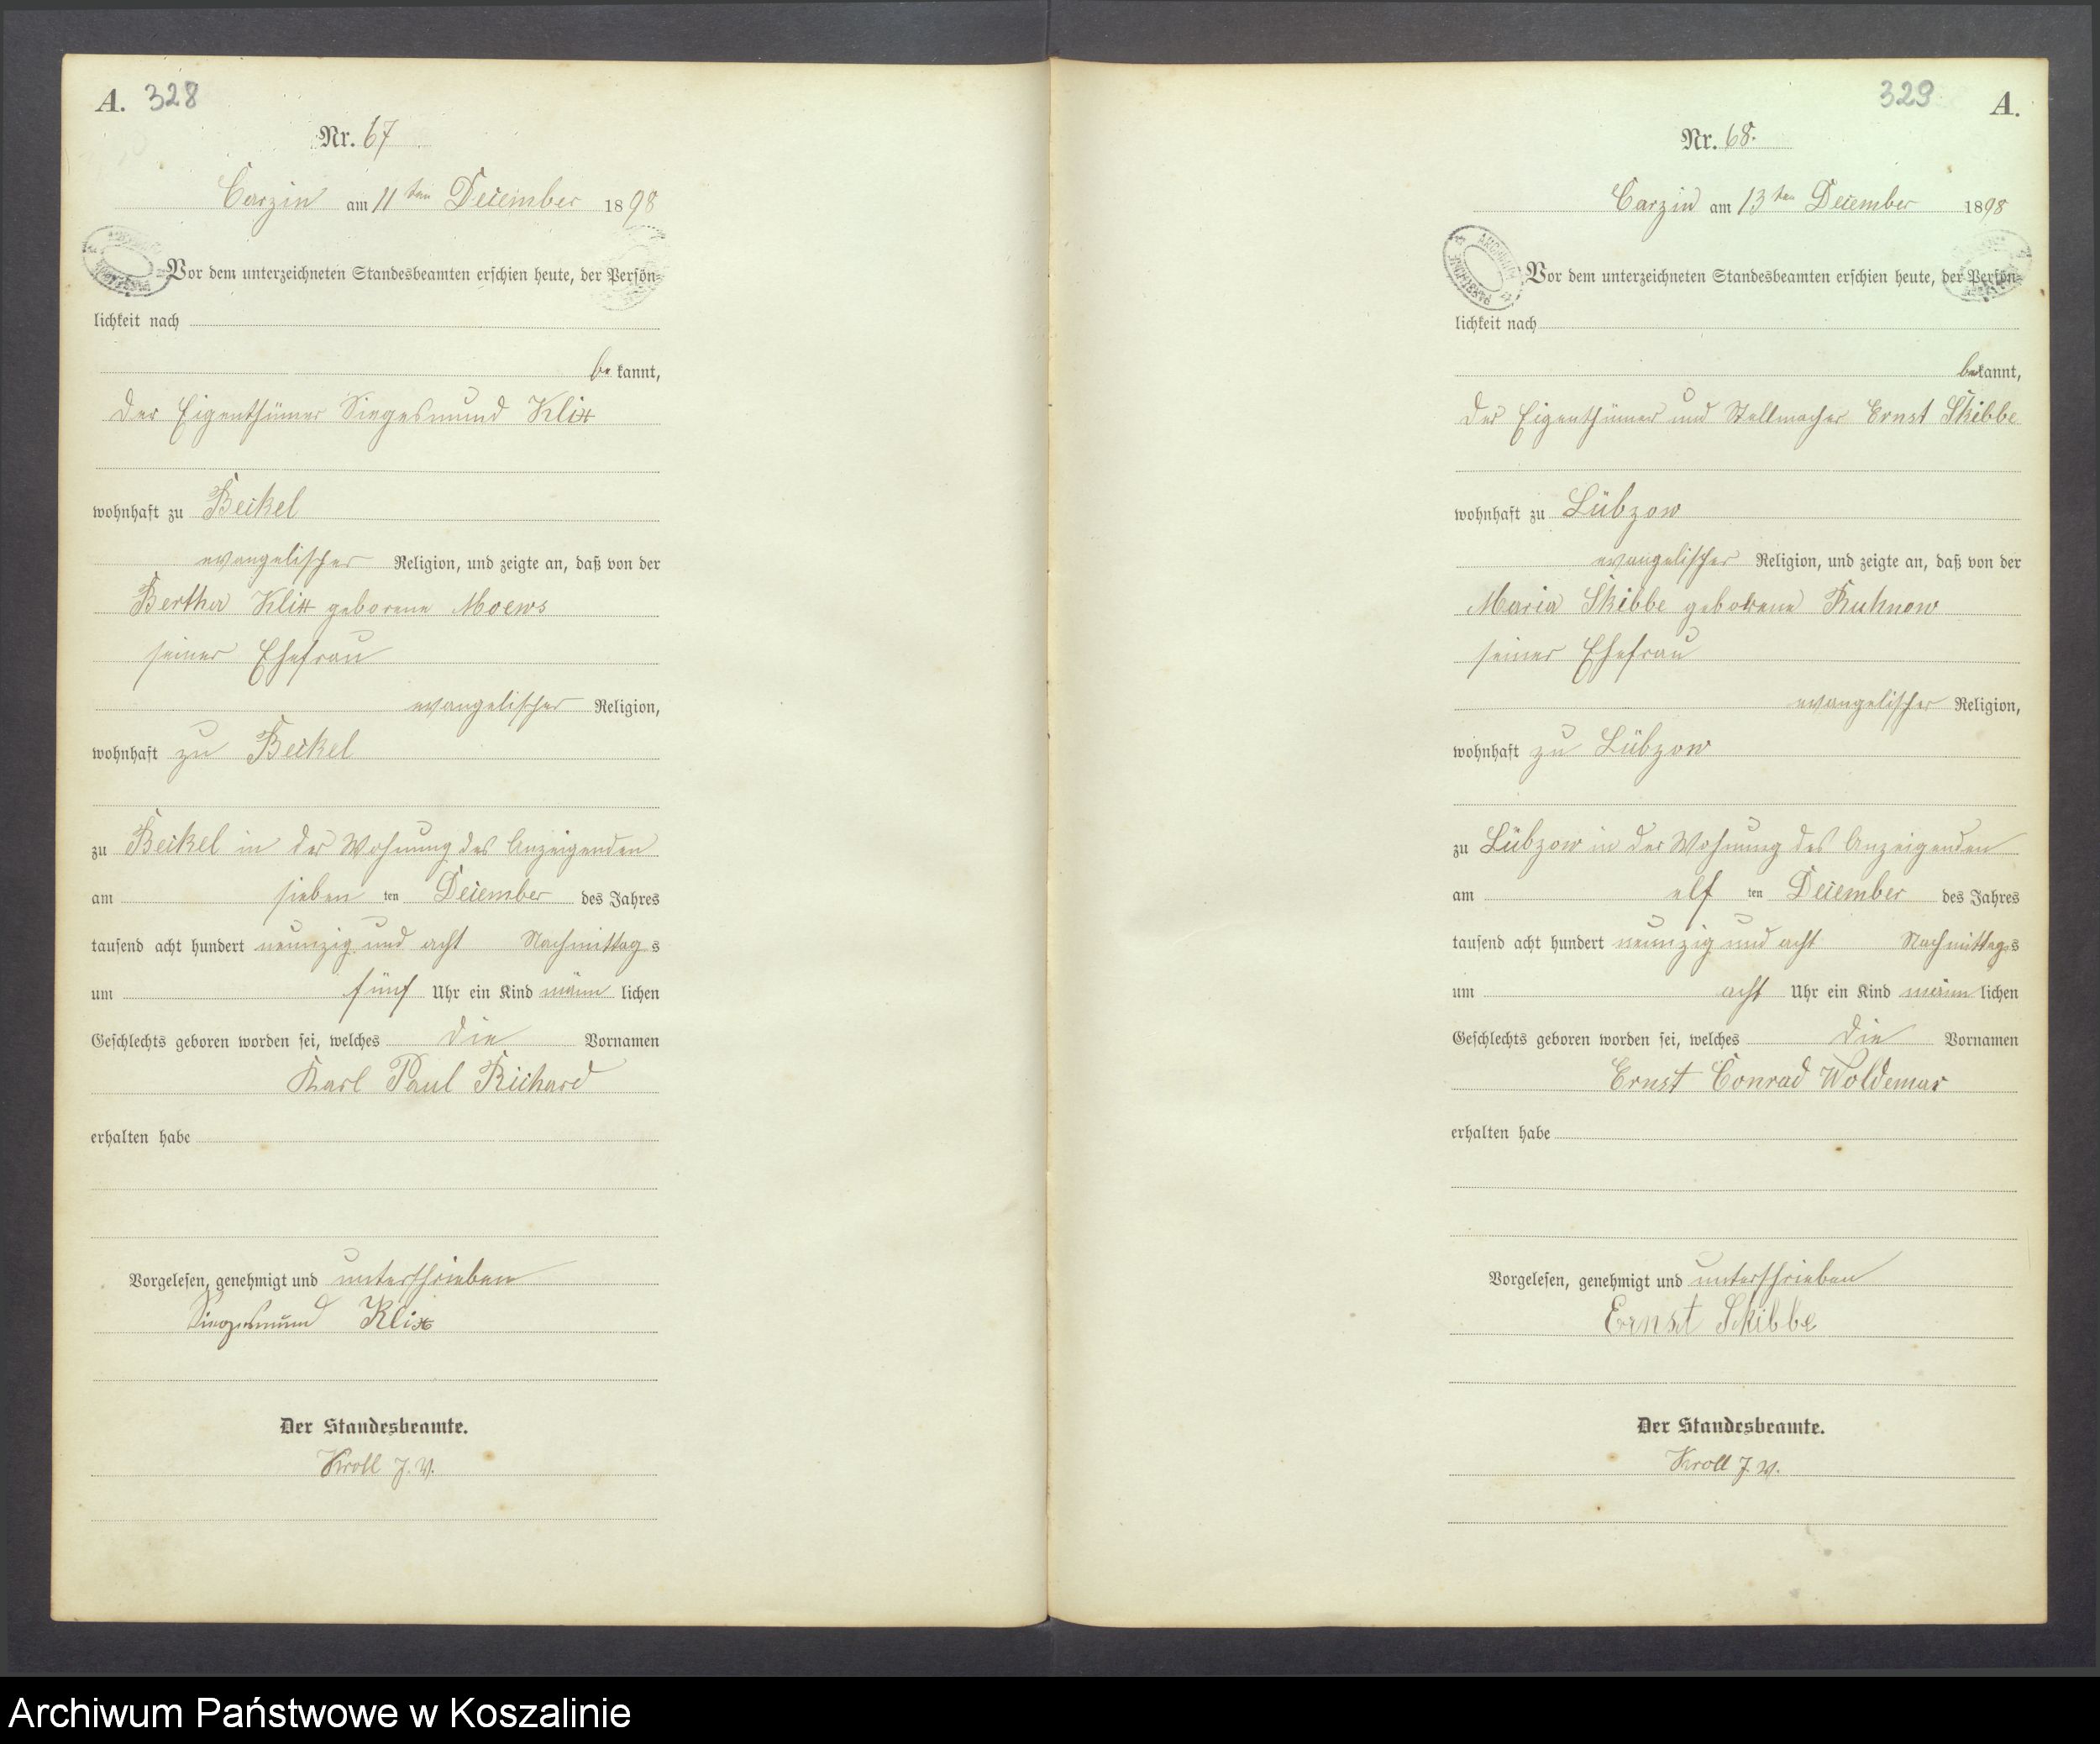 A. 328
Nr. 67
Carzin am 11ten December 1898
Vor dem unterzeichneten Standesbeamten erschien heute, der Persön-
lichkeit nach
be kannt,
der Eigenthümer Siegesmund Klix
wohnhaft zu Beckel
evangelischer Religion, und zeigte an, daß von der
Bertha Klix geborene Moews
seiner Ehefrau
evangelischer Religion,
wohnhaft zu Beckel
zu Beckel in der Wohnung des Anzeigenden
am sieben ten December des Jahres
tausend acht hundert neunzig und acht Nachmittag s
um fünf Uhr ein Kind männ lichen
Geschlechts geboren worden sei, welches die Vornamen
Karl Paul Richard
erhalten habe
Vorgelesen, genehmigt und unterschrieben
Siegesmund Klix
Der Standesbeamte.
Kroll J. V.
329 A.
Nr. 68.
Carzin am 13ten December 1898
Vor dem unterzeichneten Standesbeamten erschien heute, der Persön-
lichkeit nach
bekannt,
der Eigenthümer und Stellmacher Ernst Skibbe
wohnhaft zu Lübzow
evangelischer Religion, und zeigte an, daß von der
Maria Skibbe geborene Ruhnow
seiner Ehefrau
evangelischer Religion,
wohnhaft zu Lübzow
zu Lübzow in der Wohnung des Anzeigenden
am elf ten December des Jahres
tausend acht hundert neunzig und acht Nachmittag s
um acht Uhr ein Kind männ lichen
Geschlechts geboren worden sei, welches die Vornamen
Ernst Conrad Woldemar
erhalten habe
Vorgelesen, genehmigt und unterschrieben
Ernst Skibbe
Der Standesbeamte.
Kroll J. V.
Archiwum Państwowe w Koszalinie